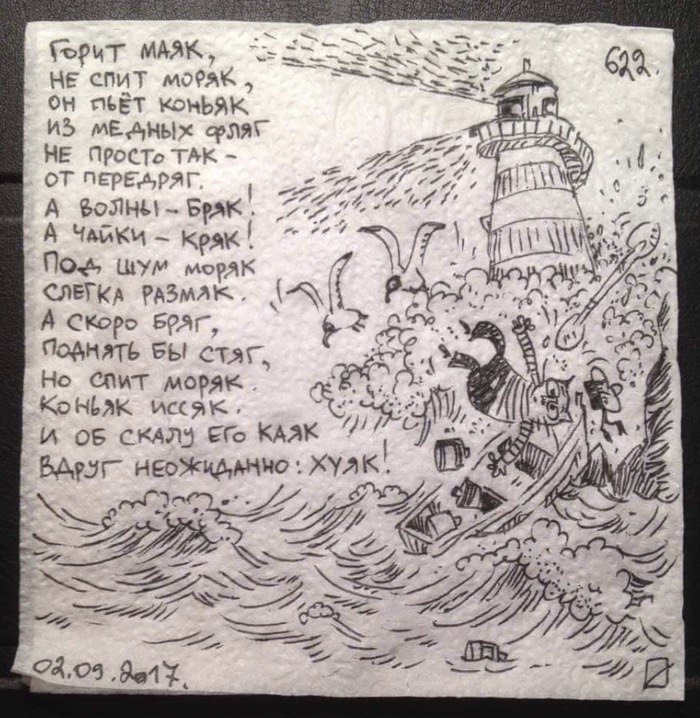 ГОРИТ МАЯК,
НЕ СПИТ МОРЯК,
ОН ПЬЁТ КОНЬЯК
ИЗ МЕДНЫХ ФЛЯГ
НЕ ПРОСТО ТАК –
ОТ ПЕРЕДРЯГ.
А ВОЛНЫ – БРЯК!
А ЧАЙКИ – КРЯК!
ПОД ШУМ МОРЯК
СЛЕГКА РАЗМЯК.
А СКОРО БРЯГ,
ПОДНЯТЬ БЫ СТЯГ,
НО СПИТ МОРЯК.
КОНЬЯК ИССЯК.
И ОБ СКАЛУ ЕГО КАЯК
ВДРУГ НЕОЖИДАННО: ХУЯК!
622.
02.09.2017.